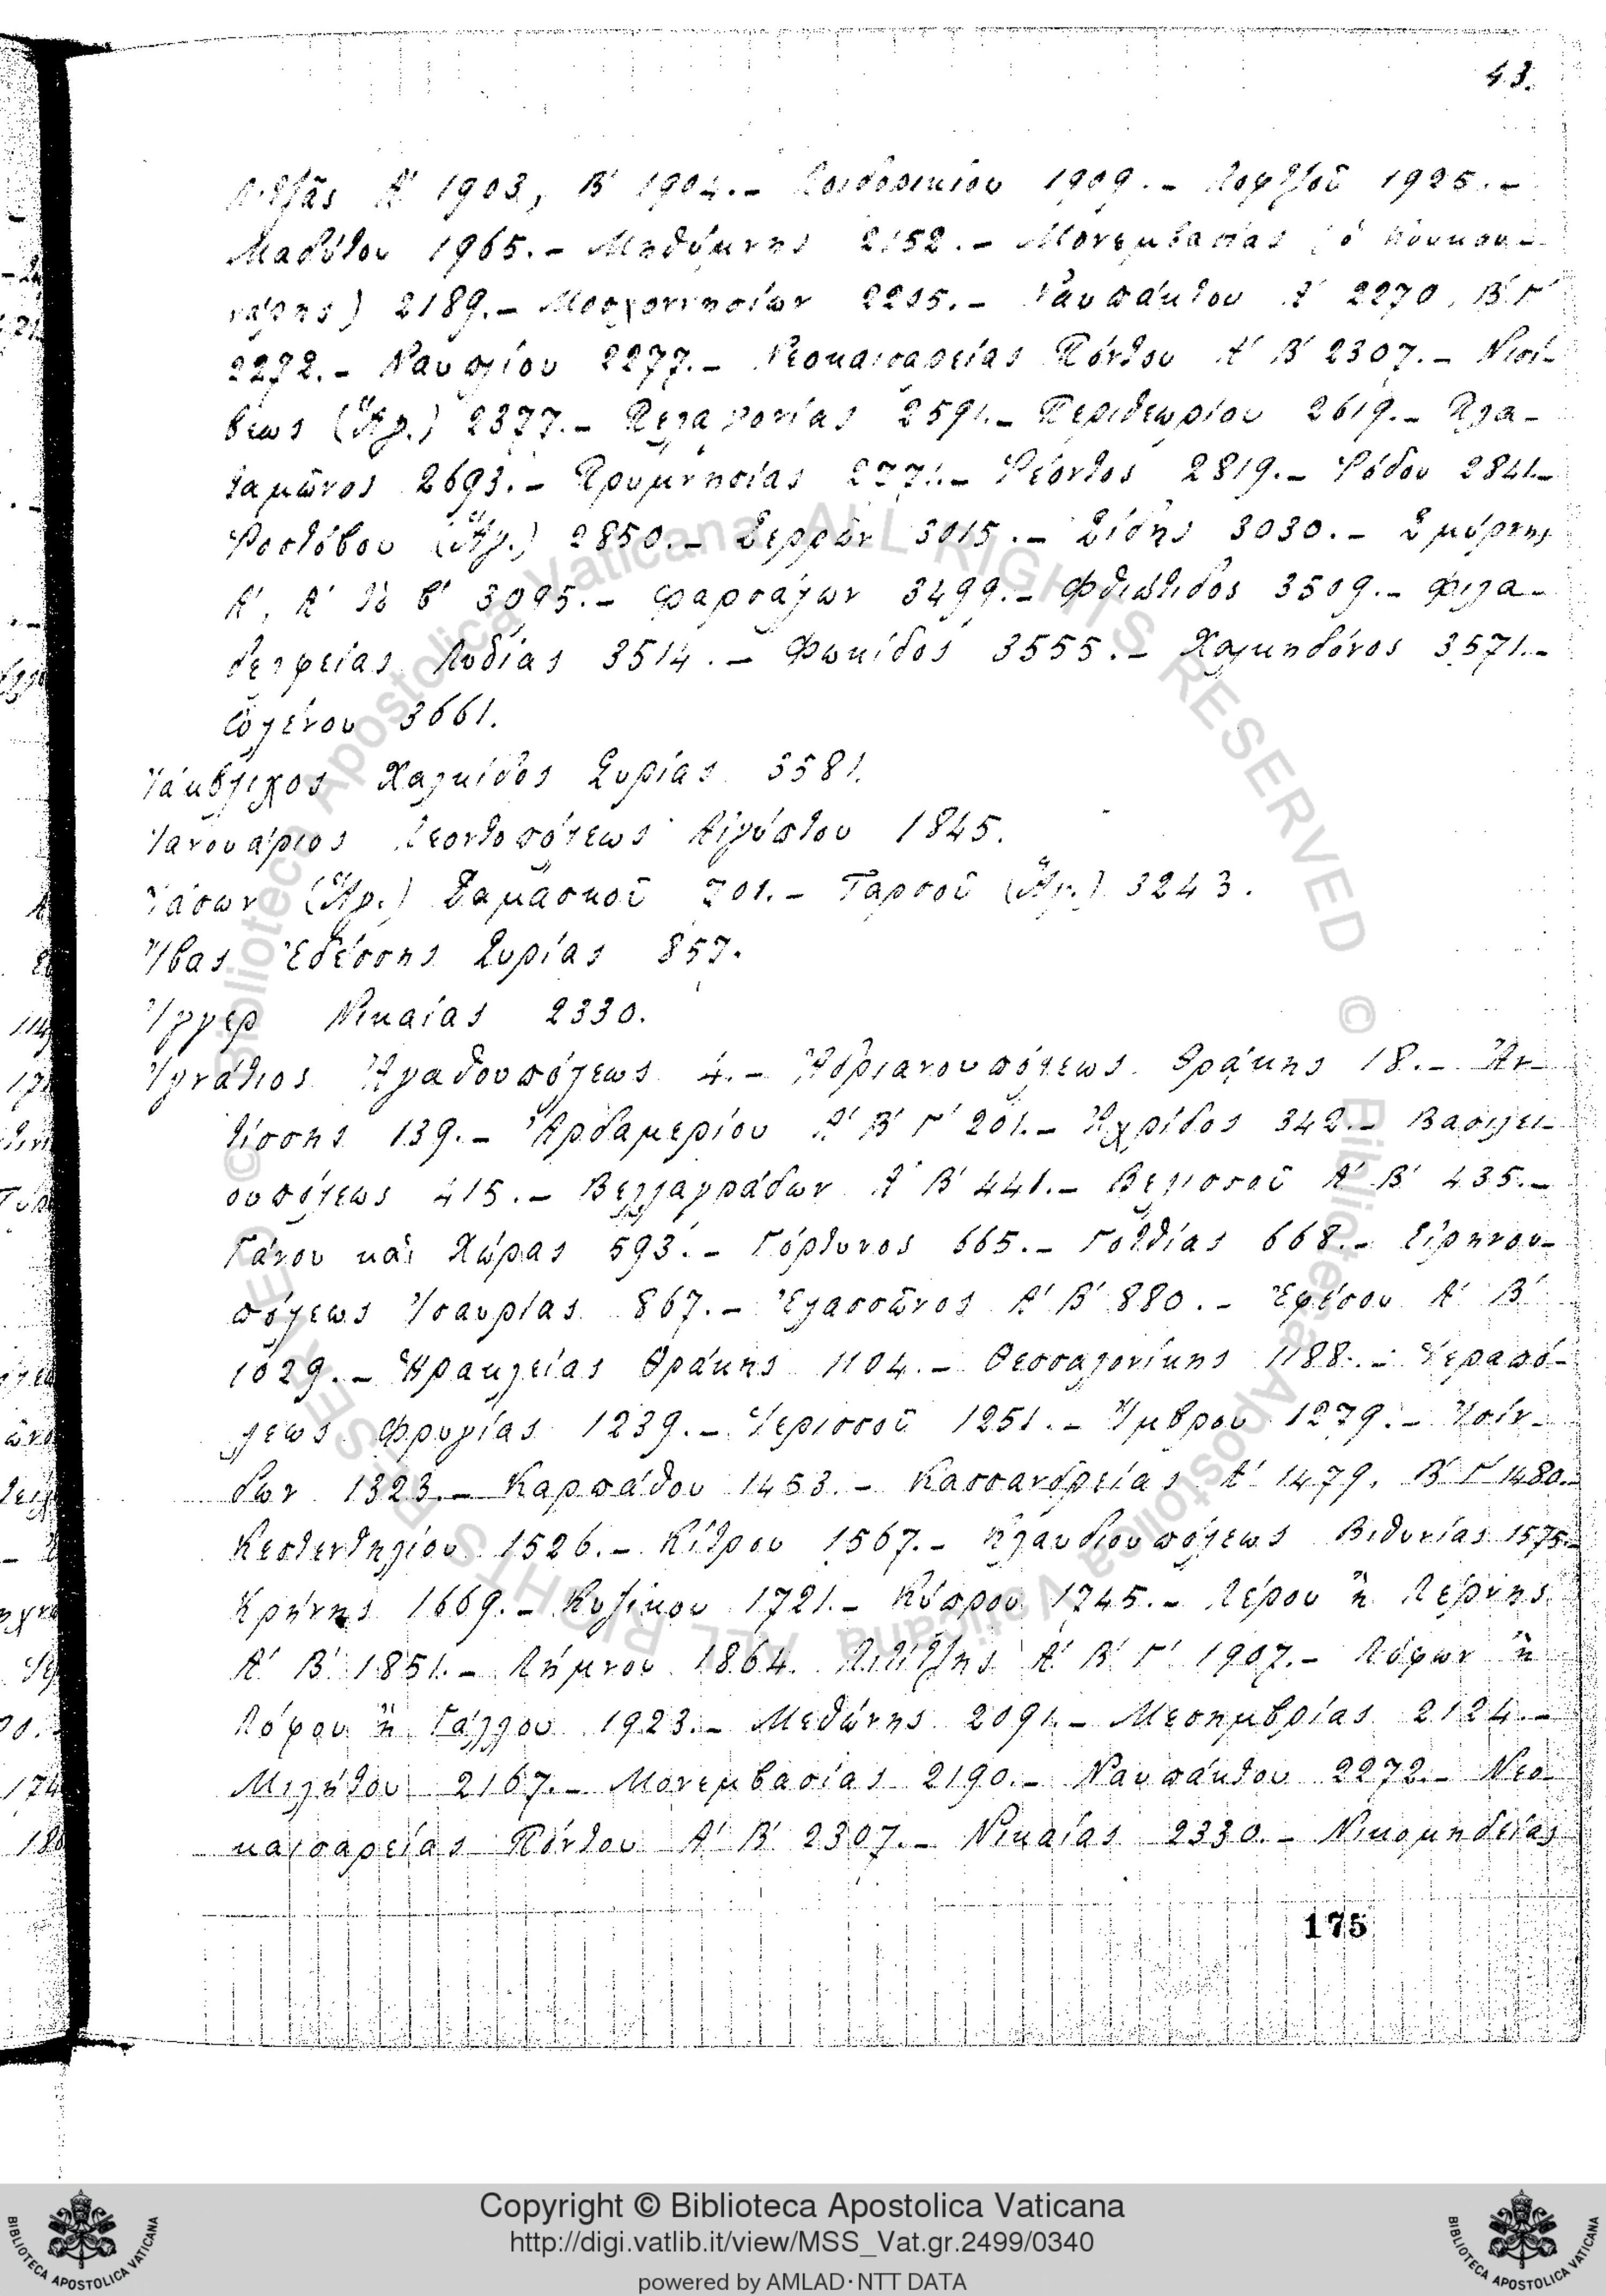 43.
Λιτζᾶς Α' 1903, Β' 1904.- Λοιδορικίου 1909.- Λοφτζοῦ 1925.-
Μαδύτου 1965.- Μηθύμνης 2152.- Μονεμβασίας (ὁ
2189.- Μοσχονησίων 2205.- Ναυπάκτου Α' 2270, Β' Γ'
2272.- Ναυπλίου 2277.- Νεοκαισαρείας Πόντου Α' Β' 2307.- Νισί-
βεως (Ἅγ.) 2377.- Πελαγονίας 2591.- Περιθεωρίου 2619.- Πλα-
ταμῶνος 2693.- Πρυμνησίας 2771.- Ῥέοντος 2819.- Ῥόδου 2841.-
Ῥοστόβου (Ἅγ.) 2850.- Σερρῶν 3015.- Σίδης 3030.- Σμύρνης
Α', Α' τὸ β' 3095.- Φαρσάλων 3499.- Φθιώτιδος 3509.- Φιλα-
δελφείας Λυδίας 3514.- Φωκίδος 3555.- Χαλκηδόνος 3571.-
Ὠλένου 3661.
Ἰάμβλιχος Χαλκίδος Συρίας 3581.
Ἰανουάριος Λεοντοπόλεως Αἰγύπτου 1845.
Ἰάσων (Ἅγ.) Δαμασκοῦ 701.- Ταρσοῦ (Ἅγ.) 3243.
Ἴβας Ἐδέσσης Συρίας 857.
Ἴγγερ Νικαίας 2330.
Ἰγνάτιος Ἀγαθουπόλεως 4.- Ἀδριανουπόλεως Θράκης 18.- Ἀν-
τίσσης 139.- Ἀρδαμερίου Α' Β' Γ' 201.- Ἀχρίδος 342.- Βασιλει-
ουπόλεως 415.- Βελλαγράδων Α' Β' 441.- Βελισσοῦ Α' Β' 435.-
Γάνου καὶ Χώρας 593.- Γόρτυνος 665.- Γοτθίας 668.- Εἰρηνου-
πόλεως Ἰσαυρίας 867.- Ἐλασσῶνος Α' Β' 880.- Ἐφέσου Α' Β'
1029.- Ἡρακλείας Θράκης 1104.- Θεσσαλονίκης 1188.- Ἱεραπό-
λεως Φρυγίας 1239.- Ἱερισσοῦ 1251.- Ἴμβρου 1279.- Ἰσίν-
δων 1323.- Καρπάθου 1453.- Κασσανδρείας Α' 1479, Β' Γ' 1480.-
Κεστεντηλίου 1526.- Κίτρου 1567.- Κλαυδιουπόλεως Βιθυνίας 1575.-
Κρήνης 1669.- Κυζίκου 1721.- Κύπρου 1745.- Λέρου ἢ Λέρνης
Α' Β' 1851.- Λήμνου 1864. Λιτίτζης Α' Β' Γ' 1907.- Λόφων ἢ
Λόφου ἢ Γάλλου 1923.- Μεθώνης 2091.- Μεσημβρίας 2124.-
Μιλήτου 2167.- Μονεμβασίας 2190.- Ναυπάκτου 2272.- Νεο-
καισαρείας Πόντου Α' Β' 2307.- Νικαίας 2330.- Νικομηδείας
175
Copyright © Biblioteca Apostolica Vaticana
http://digi.vatlib.it/view/MSS_Vat.gr.2499/0340
powered by AMLAD·NTT DATA